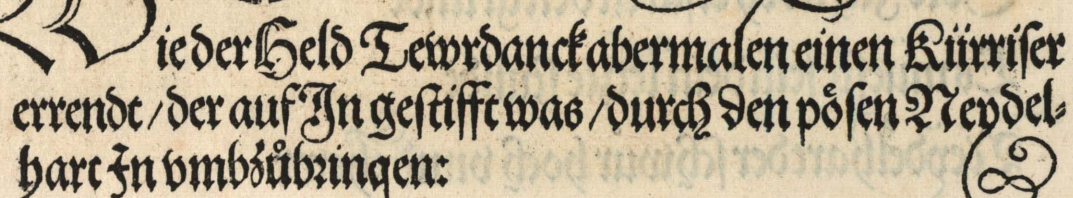 Wie der Held Tewrdanck abermalen einen Kürriſer
errendt / der auf In geſtifft was / durch den pöſen Neydel⸗
hart In vmbzůbringen: